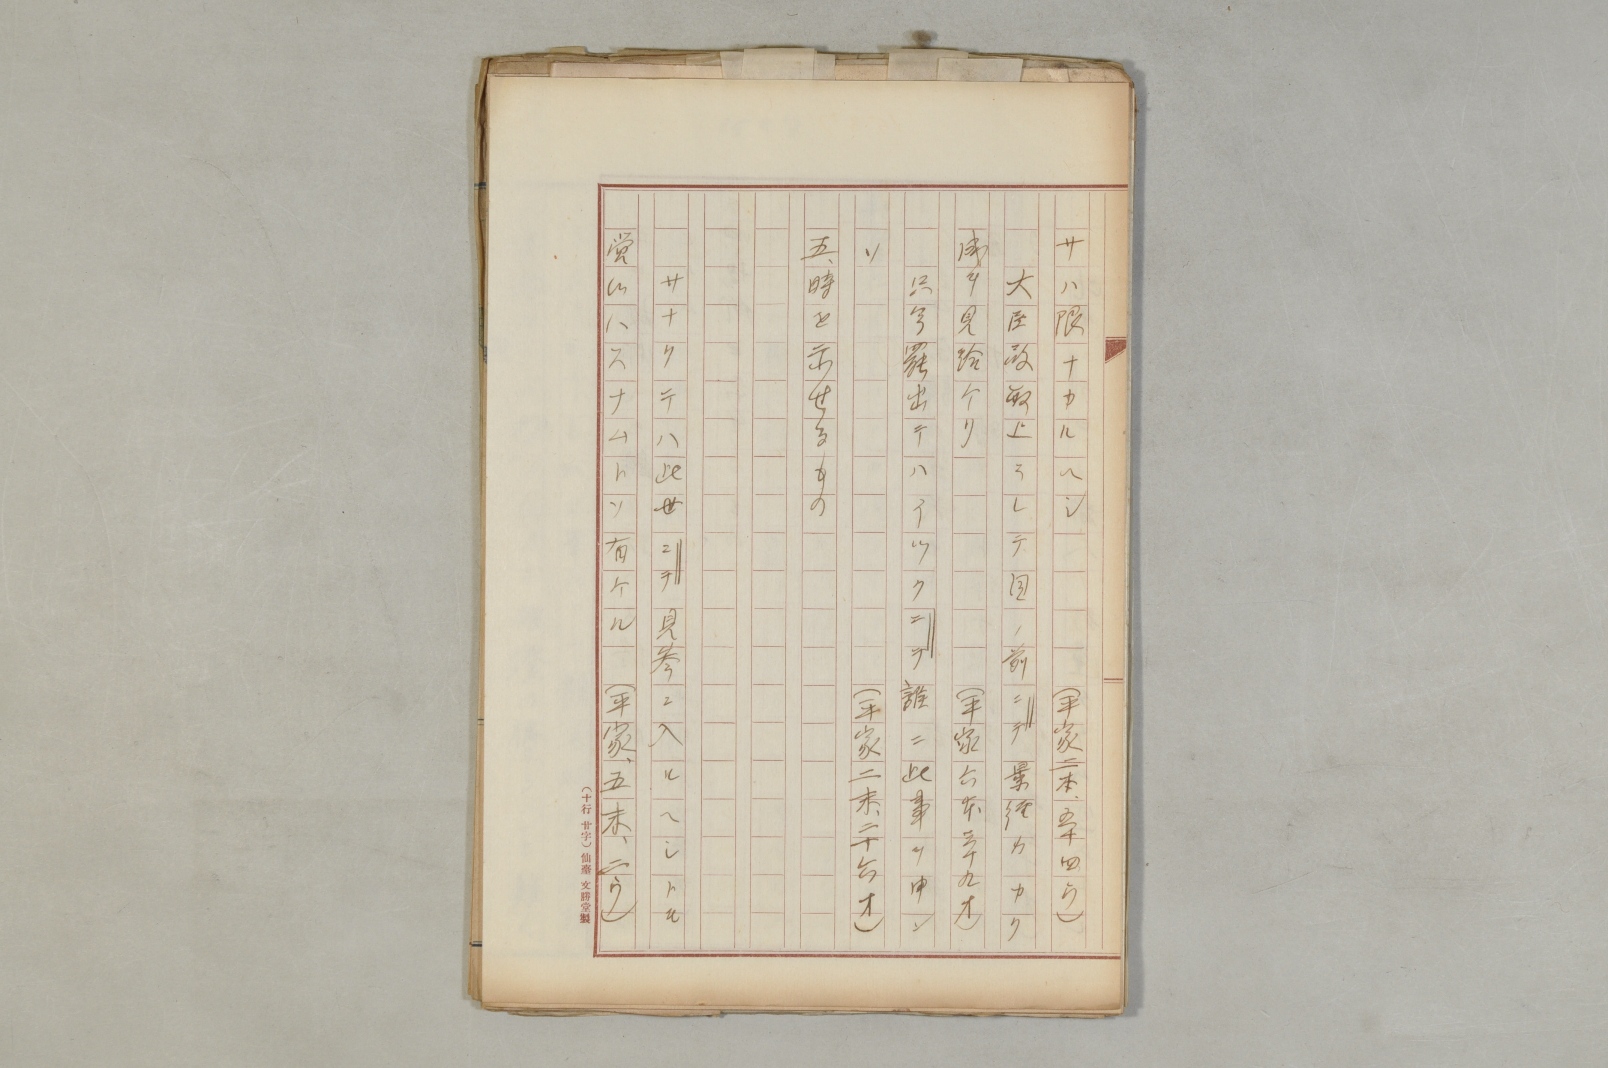 サハ限ナカルヘシ　（平家二本、五十四ウ）
大臣殿取上ラレテ図ノ前ニテ景経カカク
成ヲ見給ケリ　（平家六本 三十九オ）
只今罷出テハイツクニテ誰ニ此事ヲ申シ
ソ　（平家二末、二十六オ）
五、時を示せるもの
サナクテハ此世ニテ見参ニ入ルヘシトモ
覚ハスナムトソ有ケル　（平家、五末、二ウ）
（十行 廿字）仙臺 文勝堂製